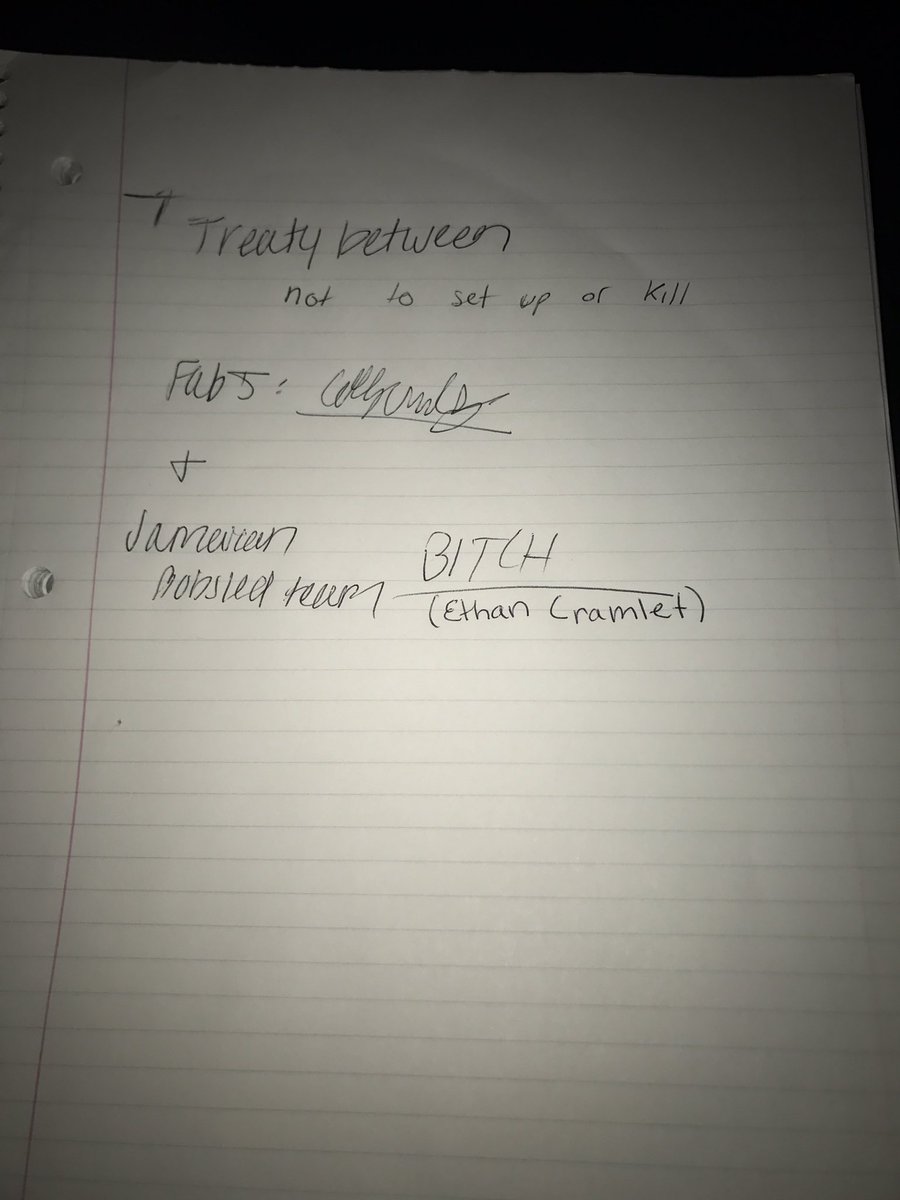 Treaty between
not to set up or kill
Fab 5:
+
Jamaican
Bobsled team BITCH
(Ethan Cramlet)